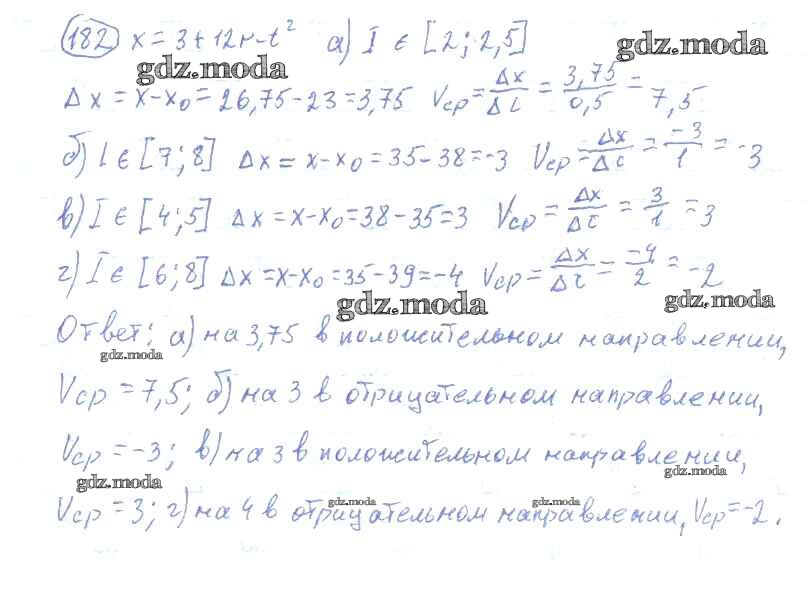 182) x = 3 + 12t - t² а) I ∈ [2; 2,5]
gdz.moda gdz.moda
Δx = x - x₀ = 26,75 - 23 = 3,75 Vср = Δx/Δt = 3,75/0,5 = 7,5
б) t ∈ [7; 8] Δx = x - x₀ = 35 - 38 = -3 Vср = Δx/Δt = -3/1 = -3
в) I ∈ [4; 5] Δx = x - x₀ = 38 - 35 = 3 Vср = Δx/Δt = 3/1 = 3
г) I ∈ [6; 8] Δx = x - x₀ = 35 - 39 = -4 Vср = Δx/Δt = -4/2 = -2
gdz.moda gdz.moda
Ответ: а) на 3,75 в положительном направлении,
gdz.moda
Vср = 7,5; б) на 3 в отрицательном направлении,
Vср = -3; в) на 3 в положительном направлении,
gdz.moda gdz.moda
Vср = 3; г) на 4 в отрицательном направлении, Vср = -2.
gdz.moda gdz.moda